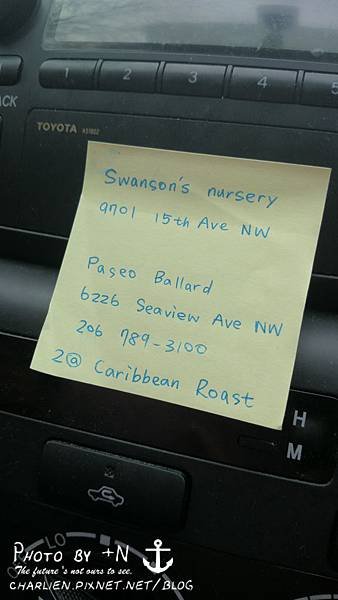 1 2 3 4 5
ACK
TOYOTA
Swanson's nursery
9701 15th Ave NW
Paseo Ballard
6226 Seaview Ave NW
206 789-3100
2@ Caribbean Roast
H
M
LO
PHOTO BY +N
The future's not ours to see.
CHARLIEN.PIXNET.NET/BLOG